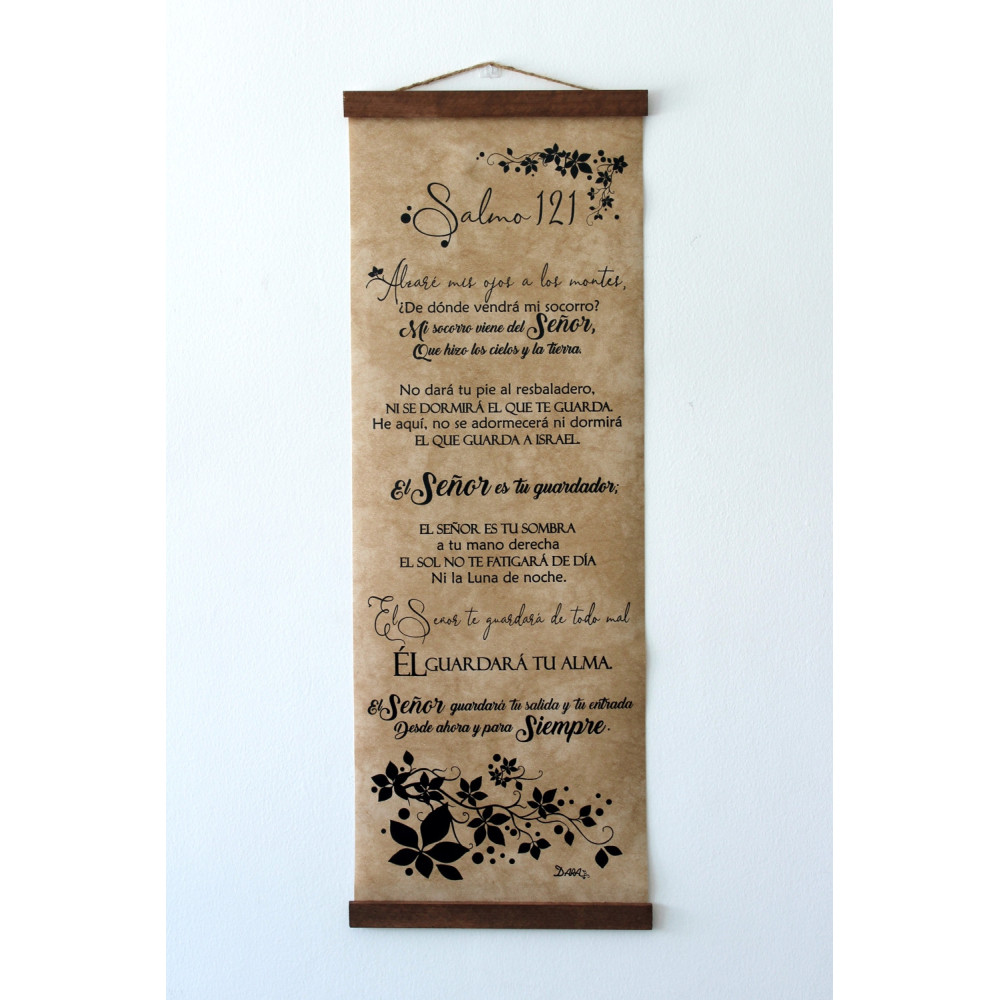 Salmo 121
Alzaré mis ojos a los montes,
¿De dónde vendrá mi socorro?
Mi socorro viene del Señor,
Que hizo los cielos y la tierra.
No dará tu pie al resbaladero,
NI SE DORMIRÁ EL QUE TE GUARDA.
He aquí, no se adormecerá ni dormirá
EL QUE GUARDA A ISRAEL.
El Señor es tu guardador;
EL SEÑOR ES TU SOMBRA
a tu mano derecha
EL SOL NO TE FATIGARÁ DE DÍA
Ni la Luna de noche.
El Señor te guardará de todo mal
ÉL GUARDARÁ TU ALMA.
El Señor guardará tu salida y tu entrada
Desde ahora y para Siempre.